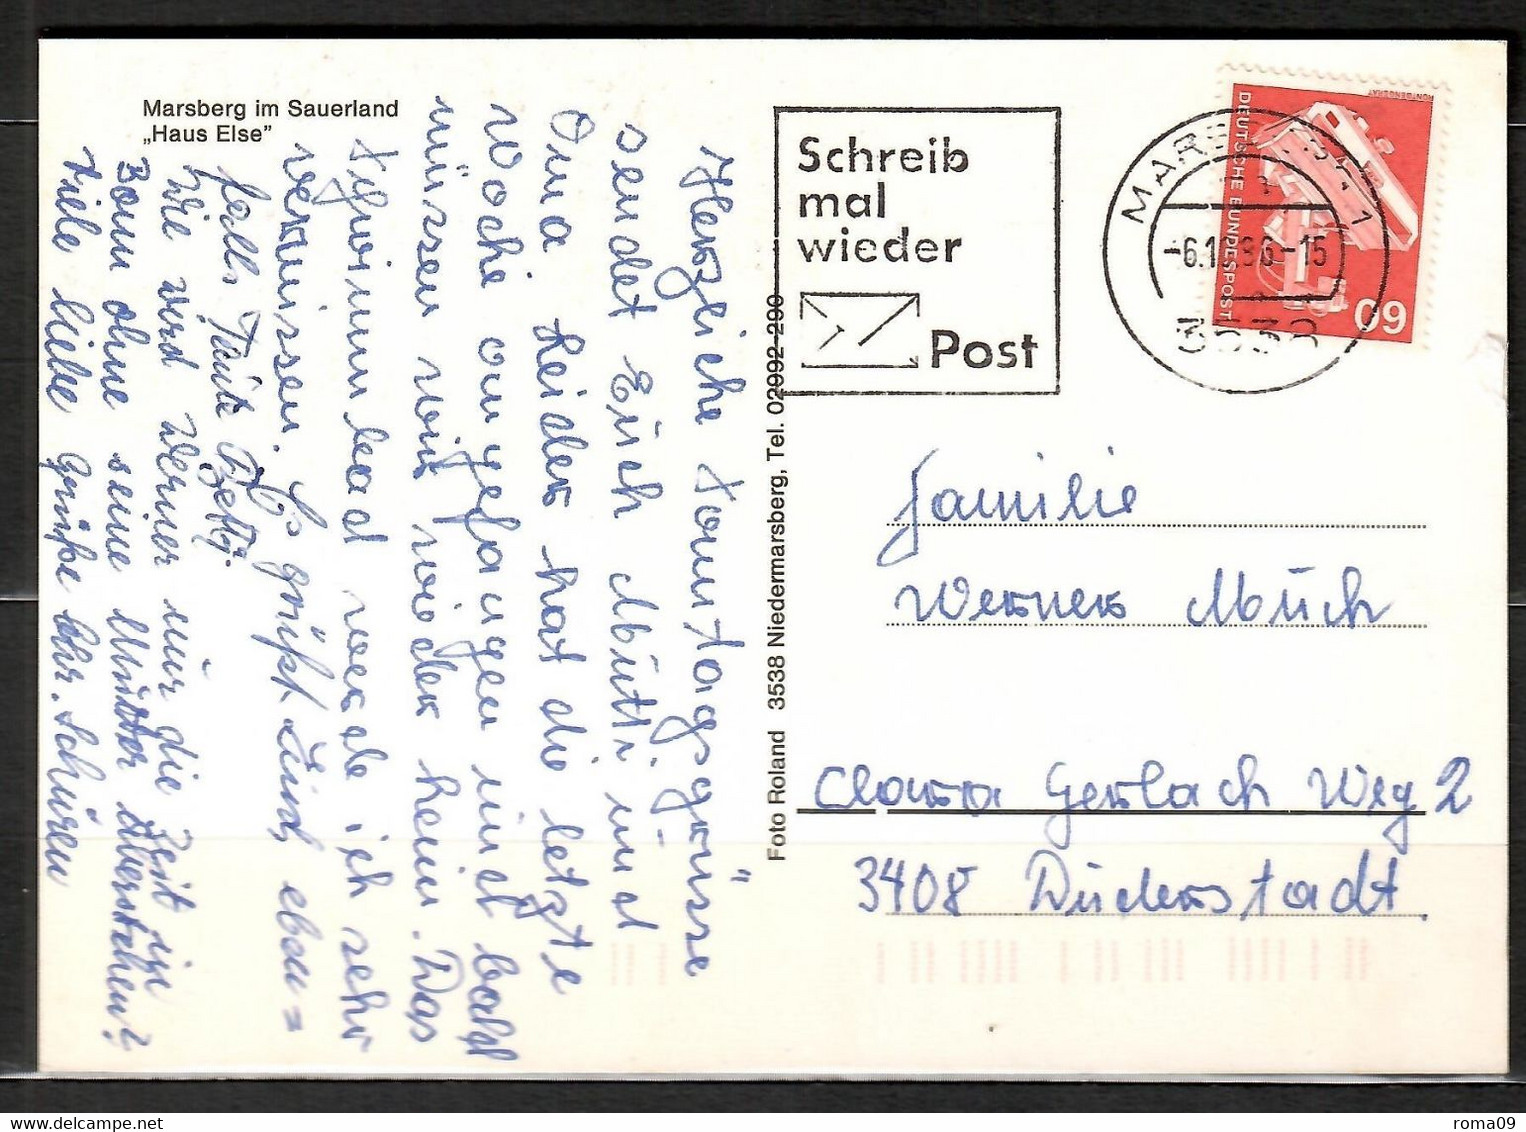 Marsberg im Sauerland
„Haus Else”
Herzliche Sonntagsgrüsse
sendet Euch Mutti und
Oma Leider hat die letzte
Woche angefangen und bald
müssen wir wieder heim. Das
Schwimmbad werde ich sehr
vermissen. Es grüßt Euch eben=
falls Tante Betty.
Wie wird Werner nur die Zeit in
Bonn ohne seine Mutter überstehen?
Viele liebe Grüße Chr. Schüren
Foto Roland 3538 Niedermarsberg, Tel. 02992-290
Schreib
mal
wieder
Post
MARSBERG 1
-6.10.86-15
3538
DEUTSCHE BUNDESPOST
RÖNTGENGERÄT
60
Familie
Werner Münch
Clara Gerlach Weg 2
3408 Duderstadt.
roma09